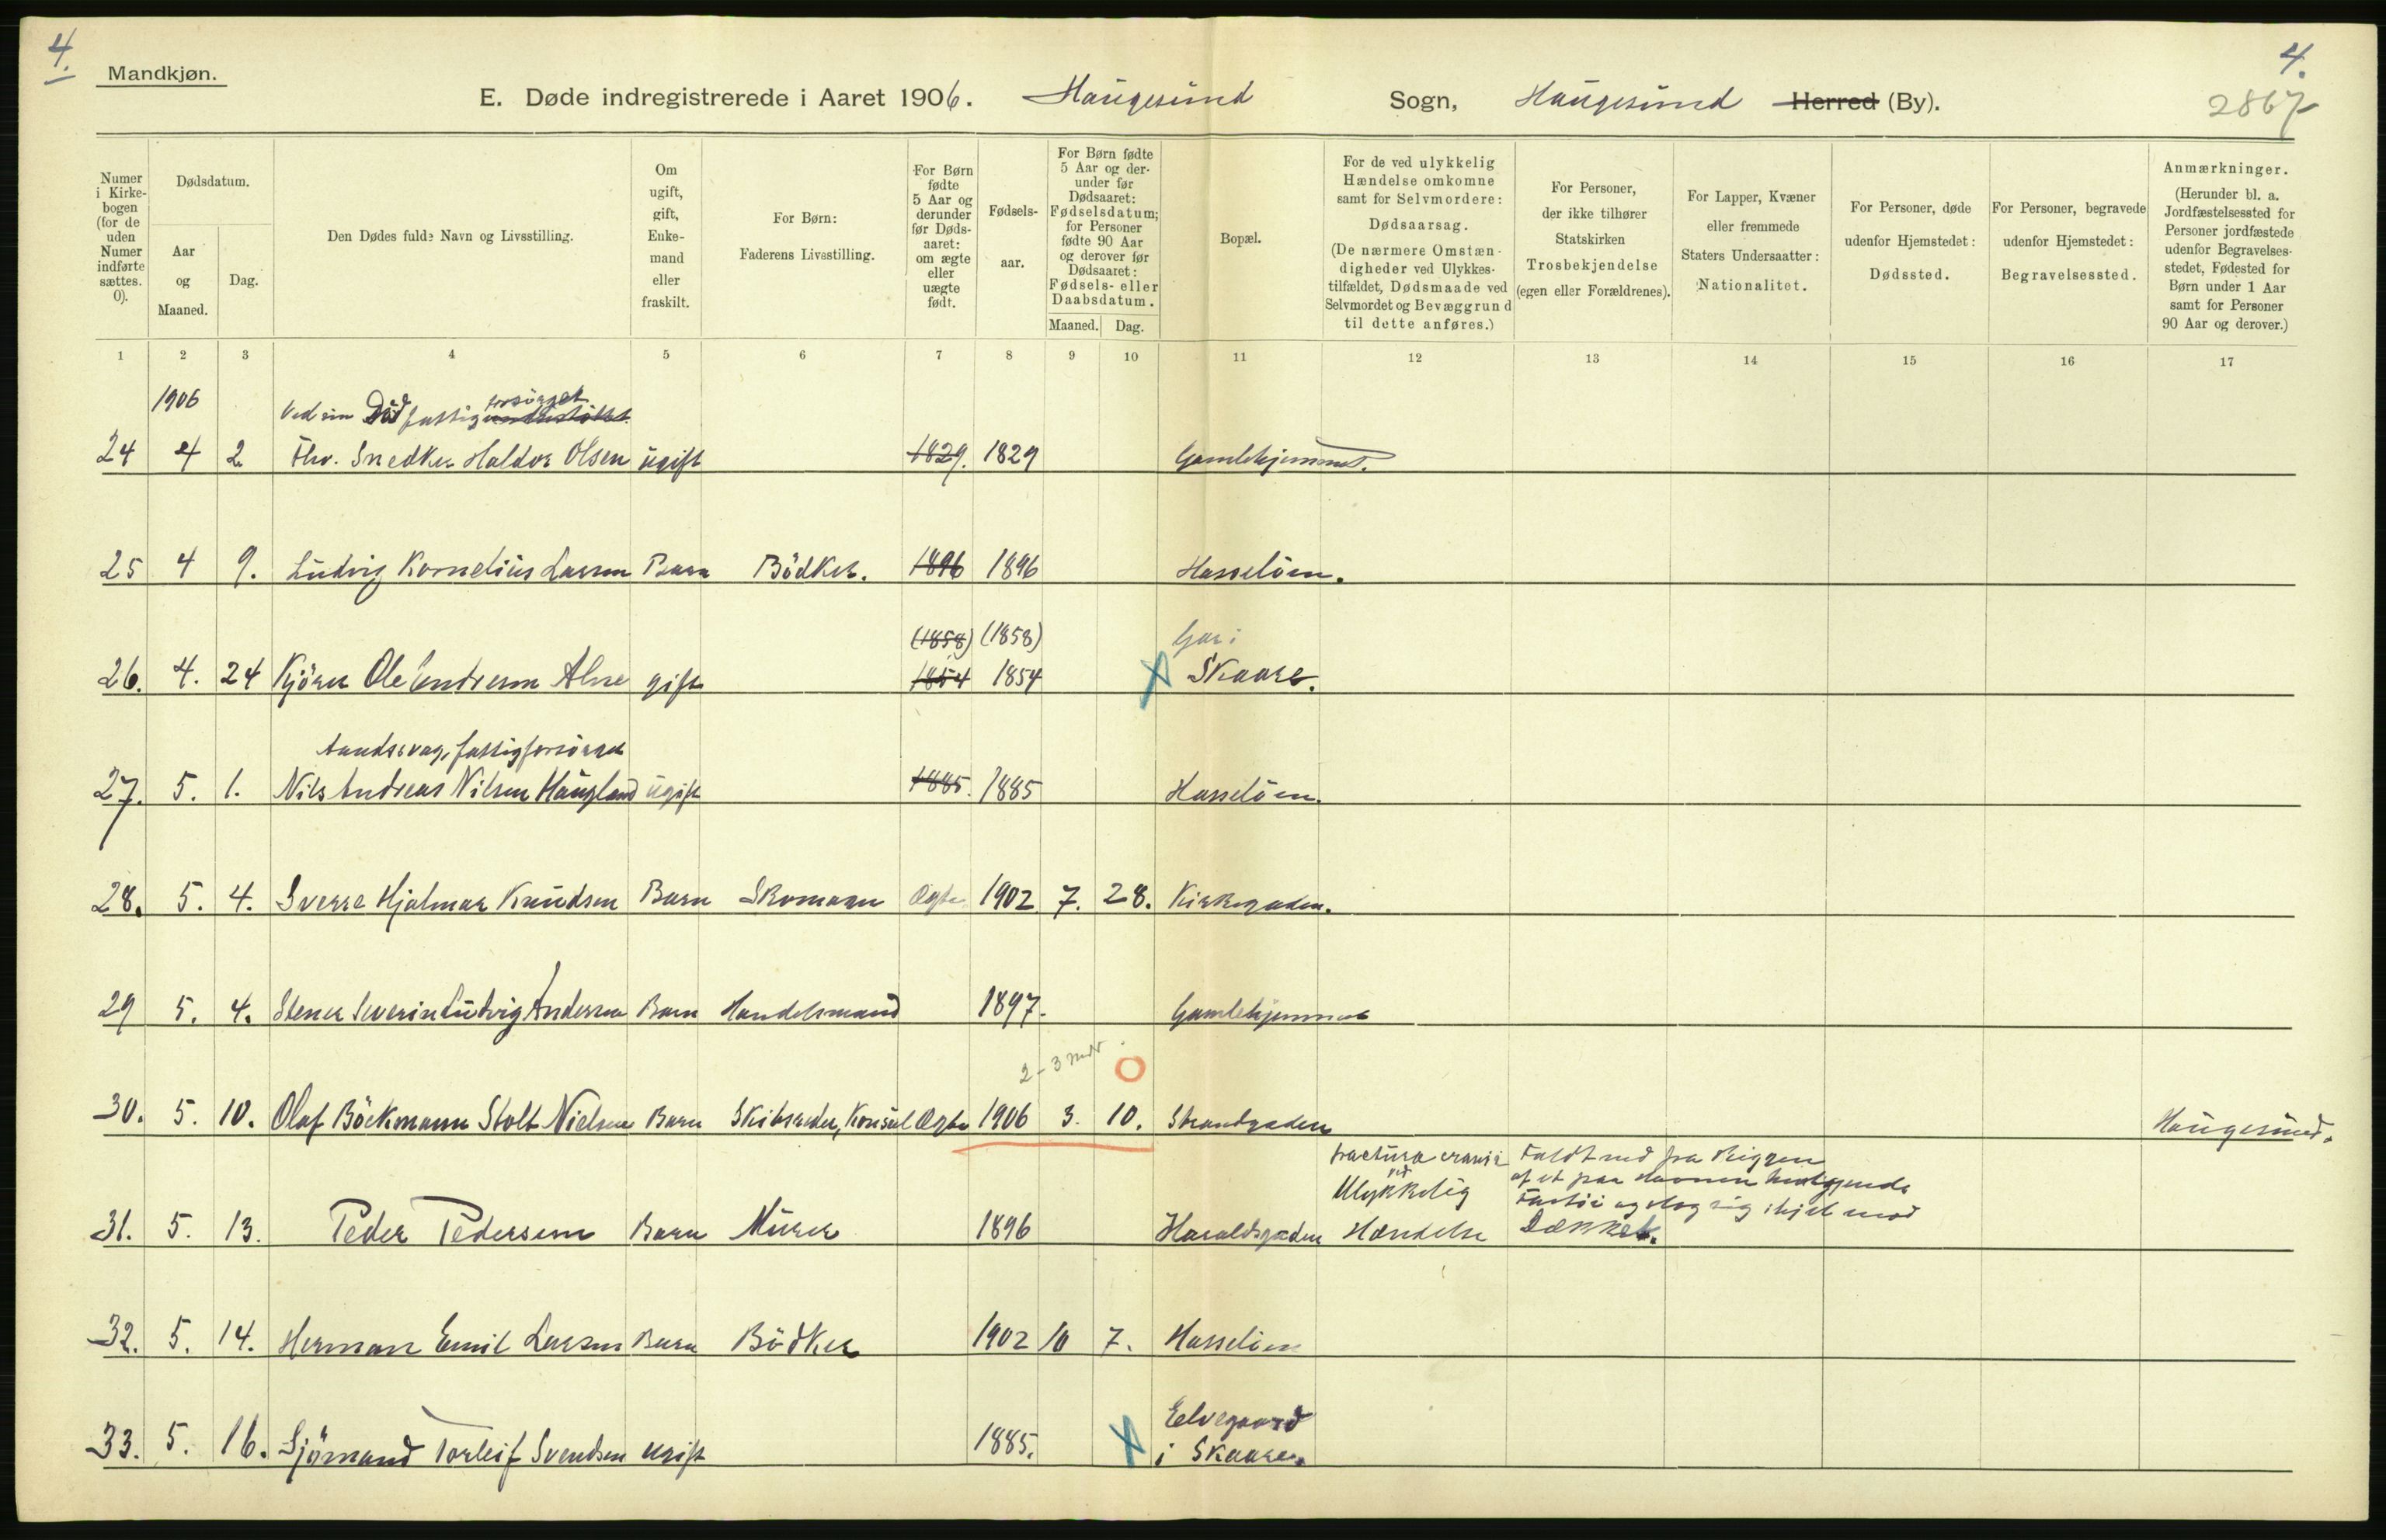 4.
4.
Mandkjøn.
E. Døde indregistrerede i Aaret 1906. Haugesund Sogn, Haugesund Herred (By).
2867
Numer i Kirkebogen (for de uden Numer indførte sættes. 0).
Dødsdatum.
Aar og Maaned.
Dag.
Den Dødes fulde Navn og Livsstilling.
Om ugift, gift, Enkemand eller fraskilt.
For Børn:
Faderens Livsstilling.
For Børn fødte 5 Aar og derunder før Dødsaaret: om ægte eller uægte født.
Fødselsaar.
For Børn fødte 5 Aar og derunder før Dødsaaret: Fødselsdatum; for Personer fødte 90 Aar og derover før Dødsaaret: Fødsels- eller Daabsdatum.
Maaned. Dag.
Bopæl.
For de ved ulykkelig Hændelse omkomne samt for Selvmordere:
Dødsaarsag.
(De nærmere Omstændigheder ved Ulykkestilfældet, Dødsmaade ved Selvmordet og Bevæggrund til dette anføres.)
For Personer, der ikke tilhører Statskirken
Trosbekjendelse
(egen eller Forældrenes).
For Lapper, Kvæner eller fremmede Staters Undersaatter:
Nationalitet.
For Personer, døde udenfor Hjemstedet:
Dødssted.
For Personer, begravede udenfor Hjemstedet:
Begravelsessted.
Anmærkninger.
(Herunder bl. a. Jordfæstelsessted for Personer jordfæstede udenfor Begravelsesstedet, Fødested for Børn under 1 Aar samt for Personer 90 Aar og derover.)
1 2 3 4 5 6 7 8 9 10 11 12 13 14 15 16 17
1906
Ved sin Död fattig understöttet forsörget
24 4 2 Fhv. Snedker Haldor Olsen ugift 1829. 1829 Gamlehjemmet.
25 4 9. Ludvig Kornelius Larsen Barn Bödker. 1896 1896 Hasselöen.
(1858) (1858) Gar i
26. 4. 24 Kjörer Ole Endresen Alne gift 1854 1854 X Skaare.
Aandssvag, fattigforsörget
27. 5. 1. Nils Andreas Nilsen Haugland ugift 1885. 1885 Hasselöen.
28. 5. 4. Sverre Hjalmar Knudsen Barn Skomager Ægte 1902 7. 28. Kirkegaden.
29 5. 4. Stener Severin Ludvig Andersen Barn Handelsmand 1897. Gamlehjemmet
2-3 mdr.
30. 5. 10. Olaf Böckmann Stolt Nielsen Barn Skibsreder, Konsul Ægte 1906 3. 10. Strandgaden Haugesund.
fractura cranii Faldt ned fra Riggen
ved af et paa Havnen henliggende
Ulykkelig Fartöi og slog sig ihjel mod
31. 5. 13. Peder Pedersen Barn Murer 1896 Haraldsgaden Hændelse Dækket.
32. 5. 14. Herman Emil Larsen Barn Bödker 1902 10 7. Hasselöen
Eelvegaard
33. 5. 16. Sjömand Torleif Svendsen ugift 1885. X i Skaare.